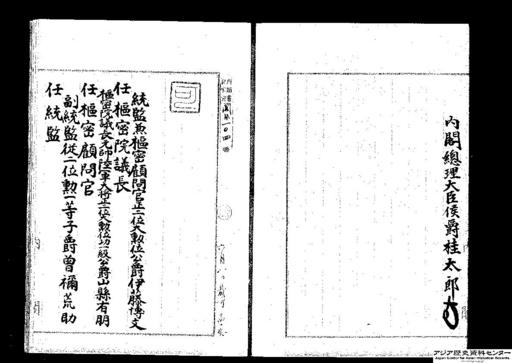 内閣總理大臣侯爵桂太郎
統監兼樞密顧問官正二位大勲位公爵伊藤博文
任樞密院議長
樞密院議長元帥陸軍大将正二位大勲位功一級公爵山縣有朋
任樞密顧問官
副統監從二位勲一等子爵曽禰荒助
任統監
アジア歴史資料センター
Japan Center for Asian Historical Records